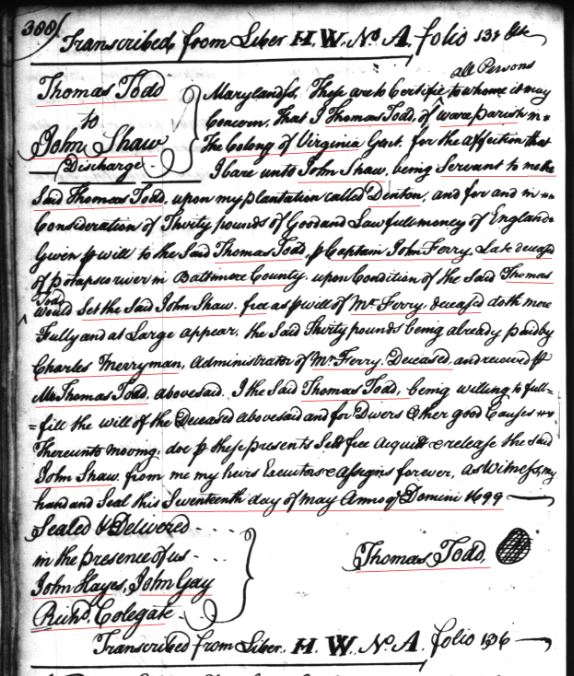 300/
Transcribed from Liber H. W. No. A, folio 134 &c
Thomas Todd
to
John Shaw
Discharge
all Persons
Marylandss, These are to Certifie to whome it may
Concern, That I Thomas Todd, of ware parish in
The Colony of Virginia Gent. for the affection that
I bare unto John Shaw, being Servant to me the
Said Thomas Todd, upon my plantation called Denton, and for and in
Consideration of Thirty pounds of Good and Lawfull money of England
Given p will to the Said Thomas Todd, p Captain John Ferry, Late deceased
of potapsco river in Baltimore County, upon Condition of the Said Thomas
Todd
would Set the Said John Shaw, free as p will of Mr Ferry, deceased doth more
Fully and at Large appear, the Said Thirty pounds being already paid by
Charles Merryman, Administrator of Mr Ferry, Deceased, and received p
Me Thomas Todd, abovesaid. I the Said Thomas Todd, being willing to full=
=fill the will of the Deceased abovesaid and for Divers other good Causes
Thereunto moving, doe p these presents Set free Acquitt & release the Said
John Shaw, from me my heirs Executors & assigns forever, as Witness my
hand and Seal this Seventeenth day of May Annoq Domini 1699
Sealed & Delivered
in the presence of us
John Hayes, John Gay
Richd. Colegate
Thomas Todd
Transcribed from Liber H. W. No. A, folio 136